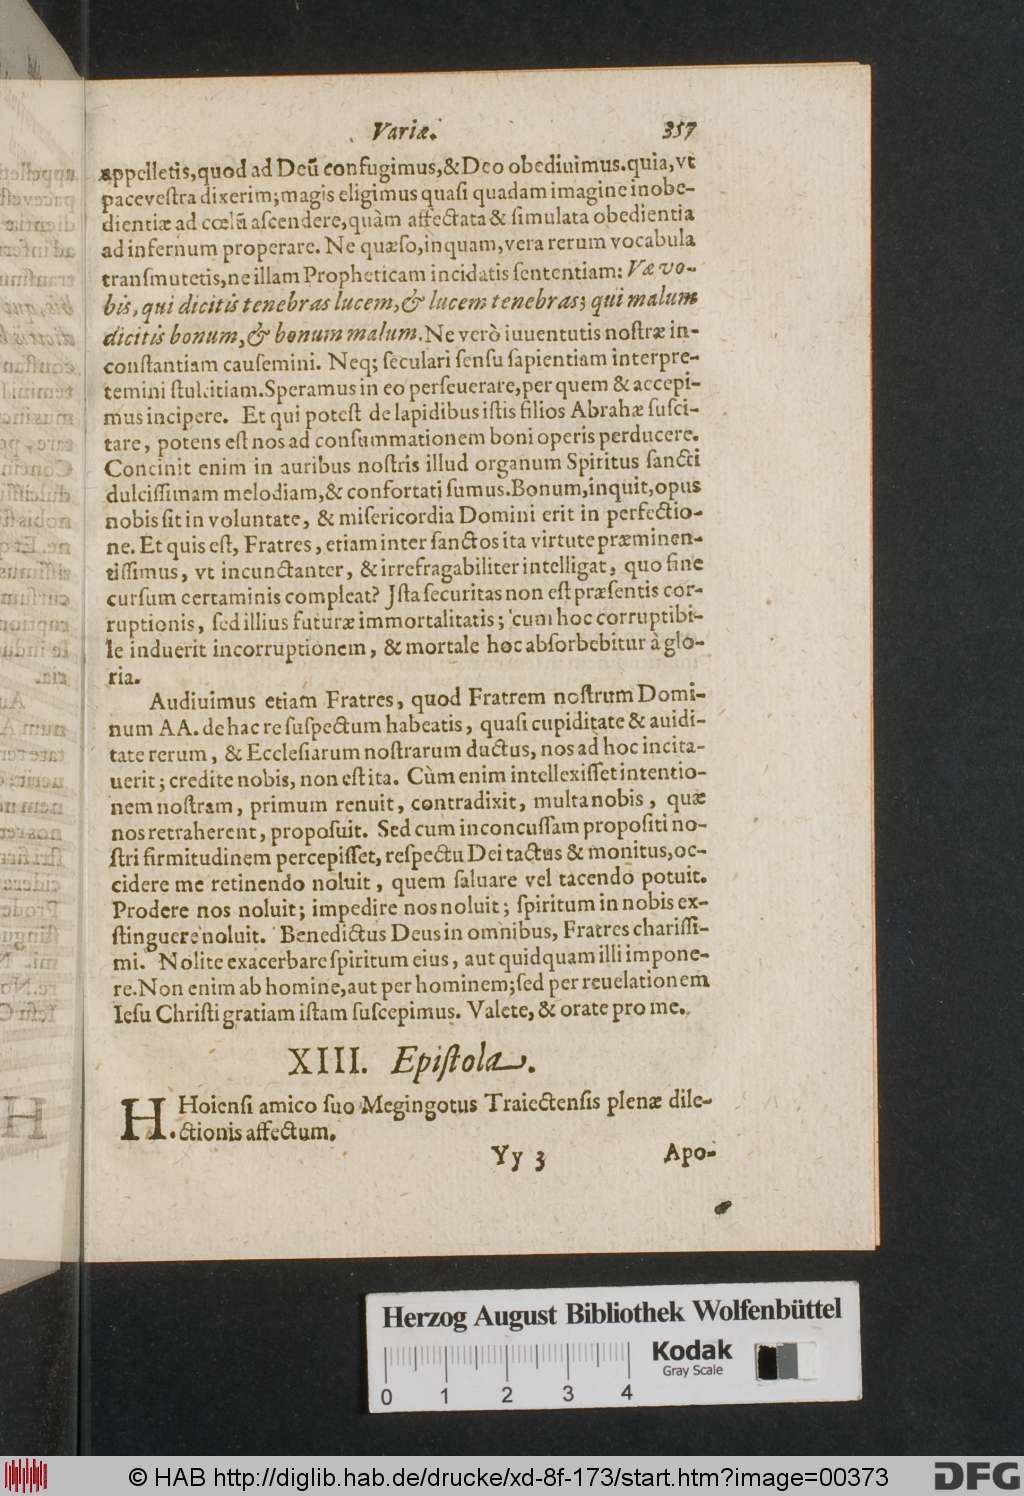 Variæ. 357
appelletis, quod ad Deũ confugimus, & Deo obediuimus. quia, vt
pace vestra dixerim; magis eligimus quasi quadam imagine inobe-
dientiæ ad cœlũ ascendere, quàm affectata & simulata obedientia
ad infernum properare. Ne quæso, inquam, vera rerum vocabula
transmutetis, ne illam Propheticam incidatis sententiam: Væ vo-
bis, qui dicitis tenebras lucem, & lucem tenebras; qui malum
dicitis bonum, & bonum malum. Ne verò iuuentutis nostræ in-
constantiam causemini. Neq; seculari sensu sapientiam interpre-
temini stultitiam. Speramus in eo perseuerare, per quem & accepi-
mus incipere. Et qui potest de lapidibus istis filios Abrahæ susci-
tare, potens est nos ad consummationem boni operis perducere.
Concinit enim in auribus nostris illud organum Spiritus sancti
dulcissimam melodiam, & confortati sumus. Bonum, inquit, opus
nobis sit in voluntate, & misericordia Domini erit in perfectio-
ne. Et quis est, Fratres, etiam inter sanctos ita virtute præminen-
tissimus, vt incunctanter, & irrefragabiliter intelligat, quo fine
cursum certaminis compleat? Ista securitas non est præsentis cor-
ruptionis, sed illius futuræ immortalitatis; cum hoc corruptibi-
le induerit incorruptionem, & mortale hoc absorbebitur à glo-
ria.
Audiuimus etiam Fratres, quod Fratrem nostrum Domi-
num AA. de hac re suspectum habeatis, quasi cupiditate & auidi-
tate rerum, & Ecclesiarum nostrarum ductus, nos ad hoc incita-
uerit; credite nobis, non est ita. Cùm enim intellexisset intentio-
nem nostram, primum renuit, contradixit, multa nobis, quæ
nos retraherent, proposuit. Sed cum inconcussam propositi no-
stri firmitudinem percepisset, respectu Dei tactus & monitus, oc-
cidere me retinendo noluit, quem saluare vel tacendo potuit.
Prodere nos noluit; impedire nos noluit; spiritum in nobis ex-
stinguere noluit. Benedictus Deus in omnibus, Fratres charissi-
mi. Nolite exacerbare spiritum eius, aut quidquam illi impone-
re. Non enim ab homine, aut per hominem; sed per reuelationem
Iesu Christi gratiam istam suscepimus. Valete, & orate pro me.
XIII. Epistola.
H. Hoiensi amico suo Megingotus Traiectensis plenæ dile-
ctionis affectum.
Yy 3 Apo-
Herzog August Bibliothek Wolfenbüttel
Kodak
Gray Scale
0 1 2 3 4
© HAB http://diglib.hab.de/drucke/xd-8f-173/start.htm?image=00373
DFG